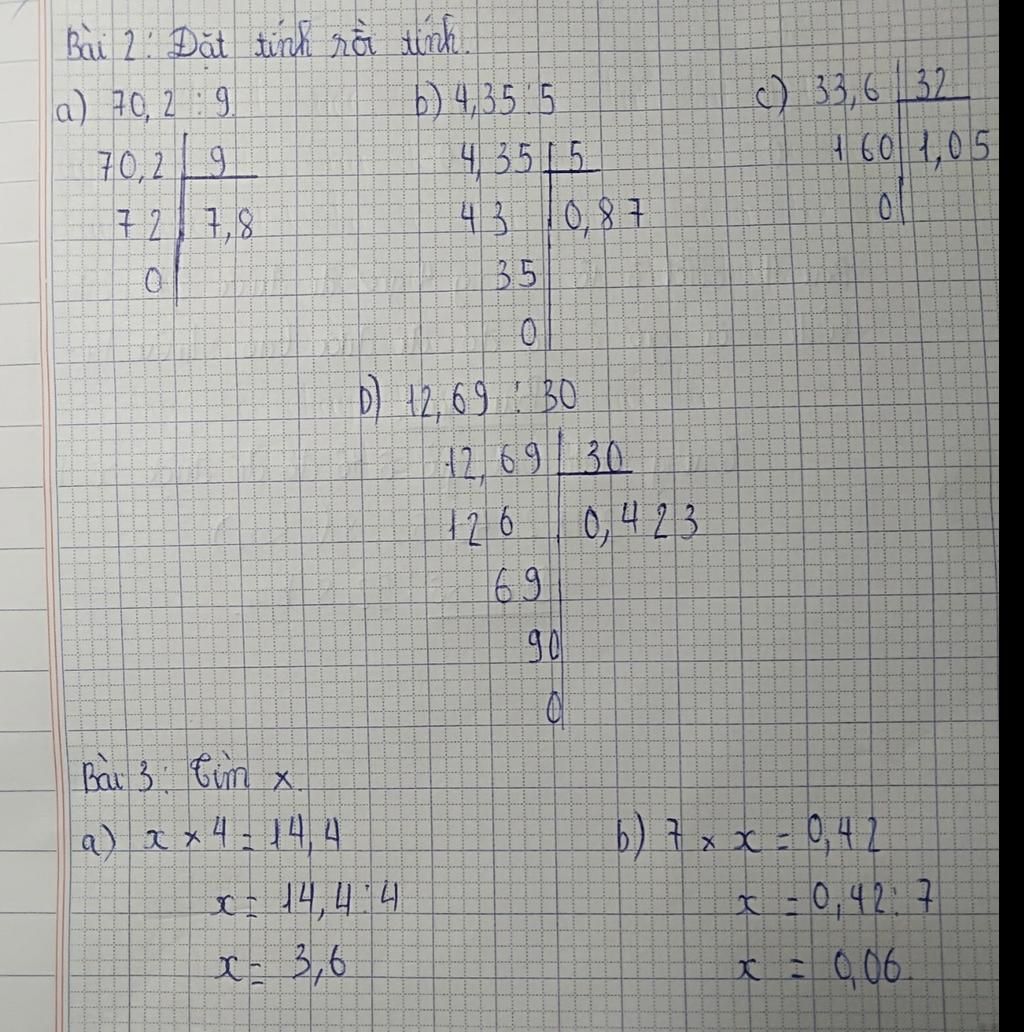 Bài 2: Đặt tính rồi tính.
a) 70,2 : 9
70,2 | 9
72 | 7,8
0
b) 4,35 : 5
4,35 | 5
43 | 0,87
35
0
c) 33,6 | 32
160 | 1,05
0
D) 12,69 : 30
12,69 | 30
126 | 0,423
69
90
0
Bài 3: Tìm x.
a) x × 4 = 14,4
x = 14,4 : 4
x = 3,6
b) 7 × x = 0,42
x = 0,42 : 7
x = 0,06.